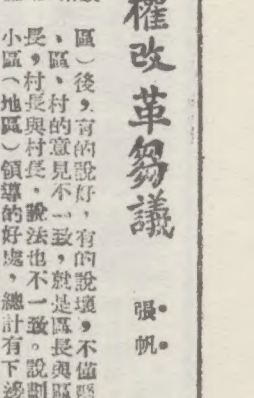 權改革芻議
張帆
區）後，有的說好，有的說壞，不僅縣
、區、村的意見不一致，就是區長與區
長，村長與村長，說法也不一致。說劃
小區（地區）領導的好處，總計有下